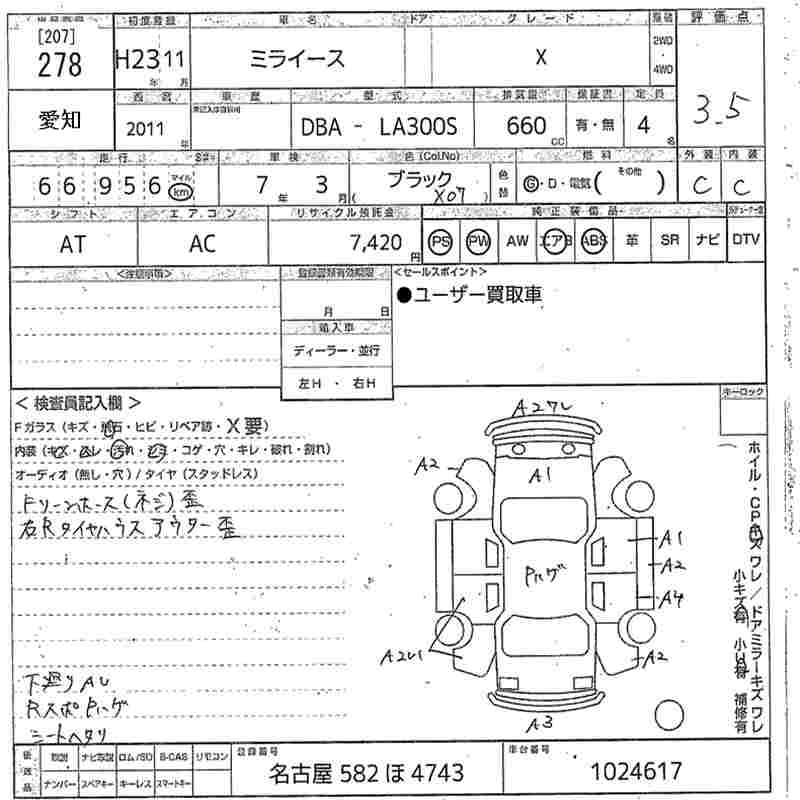 [207]
278
初度登録
H23 11
年 月
車名
ミライース
ドア
グレード
X
2WD
・
4WD
評価点
3.5
愛知
2011
年
車歴
型式
DBA - LA300S
排気量
660
CC
保証書
有・無
定員
4
名
走行
66956
マイル
km
車検
7年 3月
色(Col.No)
ブラック
( X07 )
色替
燃料
G・D・電気(その他 )
外装
C
内装
C
シフト
AT
エアコン
AC
リサイクル預託金
7,420
円
純正装備品
PS
PW
AW
エアB
ABS
革
SR
ナビ
DTV
<注意事項>
登録書類有効期限
月 日
輸入車
ディーラー・並行
左H ・ 右H
<セールスポイント>
●ユーザー買取車
キーロック
< 検査員記入欄 >
Fガラス (キズ・飛石・ヒビ・リペア跡・X要)
内装 (キズ・スレ・汚れ・シミ・コゲ・穴・キレ・破れ・割れ)
オーディオ (無し・穴) / タイヤ (スタッドレス)
ドリーンホース(ネジ)歪
右Rタイヤハウスアウター歪
下廻りAU
RスポPハゲ
シートヘタリ
A2
A1
Pハゲ
A1
A2
A4
A2
A3
小キズ有 小凹有 補修有
装備品
取説
ナビ取説
ロム/SD
B-CAS
リモコン
ナンバー
スペアキー
キーレス
スマートキー
登録番号
名古屋 582 ほ 4743
車台番号
1024617